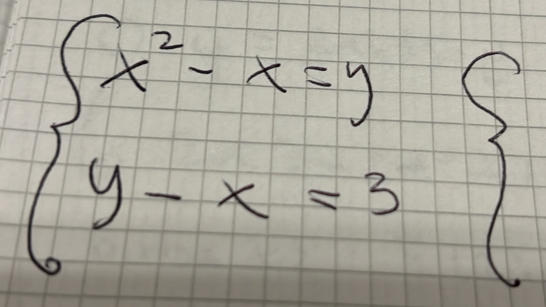 { x² - x = y {
y - x = 3